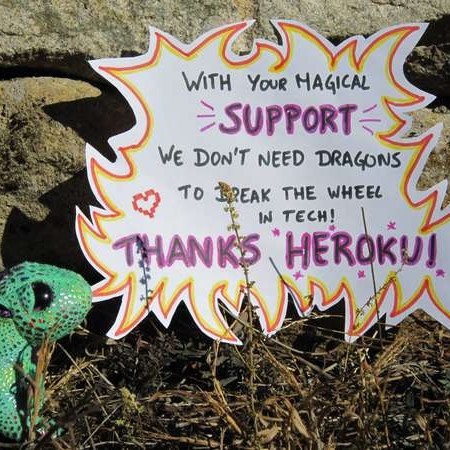 WITH YOUR MAGICAL
SUPPORT
WE DON'T NEED DRAGONS
TO BREAK THE WHEEL
IN TECH!
THANKS HEROKU!